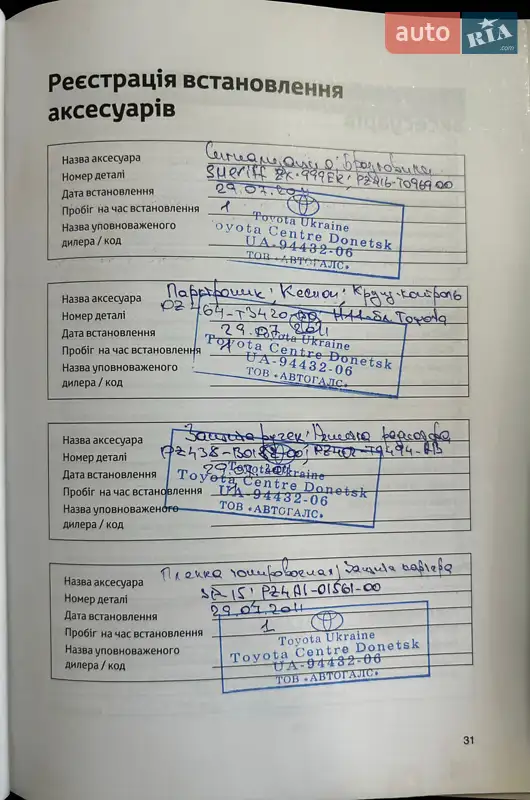 auto RIA.com
Реєстрація встановлення
аксесуарів
Назва аксесуара Сигнализация;
Номер деталі Sheriff ZX-999ER; PZ416-T0969-00
Дата встановлення 29.07.2011
Пробіг на час встановлення 1
Назва уповноваженого
дилера / код
Toyota Ukraine
Toyota Centre Donetsk
UA-94432-06
ТОВ «АВТОГАЛС»
Назва аксесуара Парктроник; Круиз-контроль
Номер деталі PZ464-T3420-00 Toyota
Дата встановлення 29.07.2011
Пробіг на час встановлення 1
Назва уповноваженого
дилера / код
Toyota Ukraine
Toyota Centre Donetsk
UA-94432-06
ТОВ «АВТОГАЛС»
Назва аксесуара Защита ручек;
Номер деталі PZ438-B0187-00;
Дата встановлення 29.07.2011
Пробіг на час встановлення 1
Назва уповноваженого
дилера / код
Toyota Ukraine
Toyota Centre Donetsk
UA-94432-06
ТОВ «АВТОГАЛС»
Назва аксесуара Пленка тонировочная; Защита картера
Номер деталі SR-15; PZ4A1-01561-00
Дата встановлення 29.07.2011
Пробіг на час встановлення 1
Назва уповноваженого
дилера / код
Toyota Ukraine
Toyota Centre Donetsk
UA-94432-06
ТОВ «АВТОГАЛС»
31